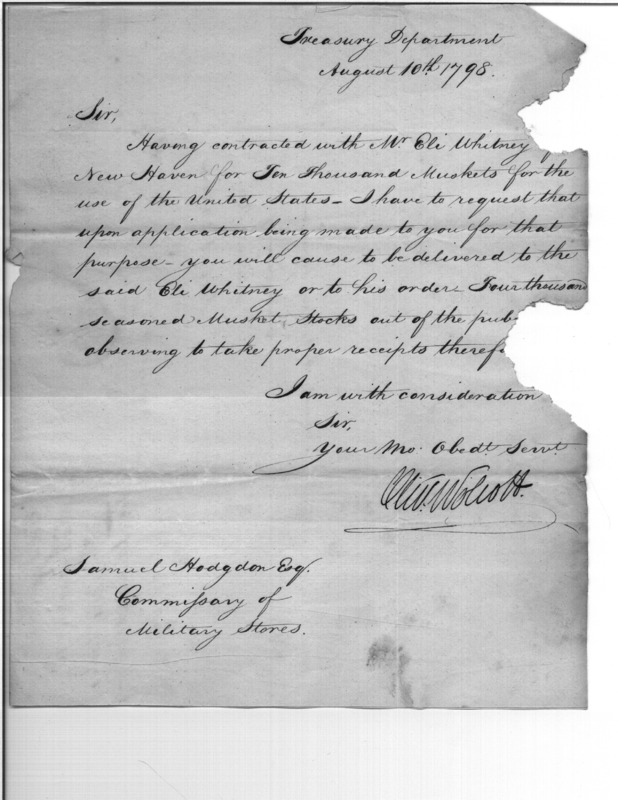 Treasury Department
August 10th 1798.
Sir,
Having contracted with Mr Eli Whitney
New Haven for Ten Thousand Muskets for the
use of the United States – I have to request that
upon application being made to you for that
purpose – you will cause to be delivered to the
said Eli Whitney or to his order – Four thousand
seasoned Musket Stocks out of the pub
observing to take proper receipts theref
I am with consideration
Sir,
Your Mo. Obedt. Servt.
Oliv. Wolcott.
Samuel Hodgdon Esq.
Commissary of
Military Stores.